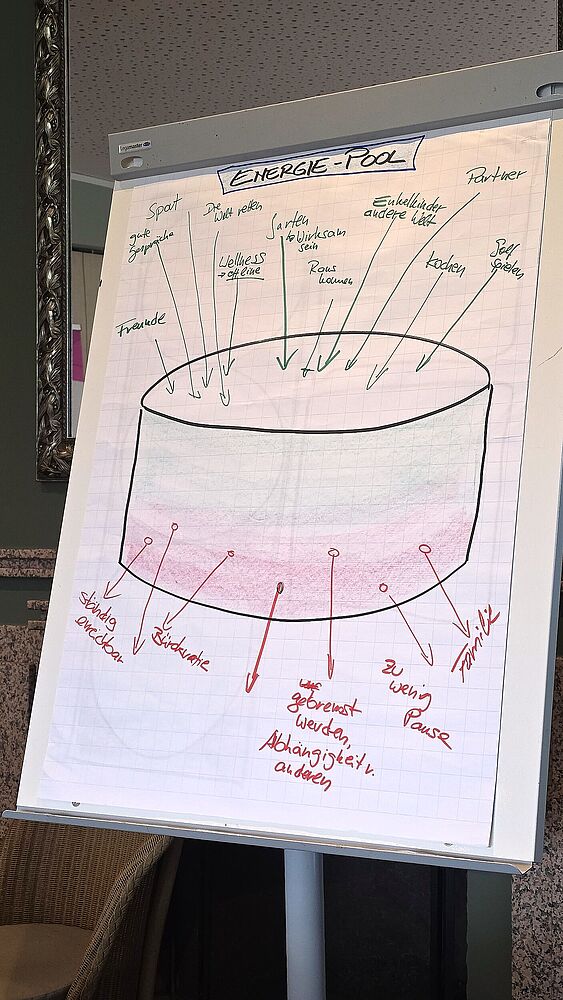 Legamaster
ENERGIE-POOL
Partner
Sport
Die
Welt retten
Enkelkinder
andere Welt
gute
Gespräche
Garten
↳ Wirksam
sein
Wellness
→ offline
Raus
kommen
Kochen
Golf
spielen
Freunde
ständig
erreichbar
Bürokratie
gebremst
werden,
Abhängigkeit v.
anderen
zu
wenig
Pause
Familie